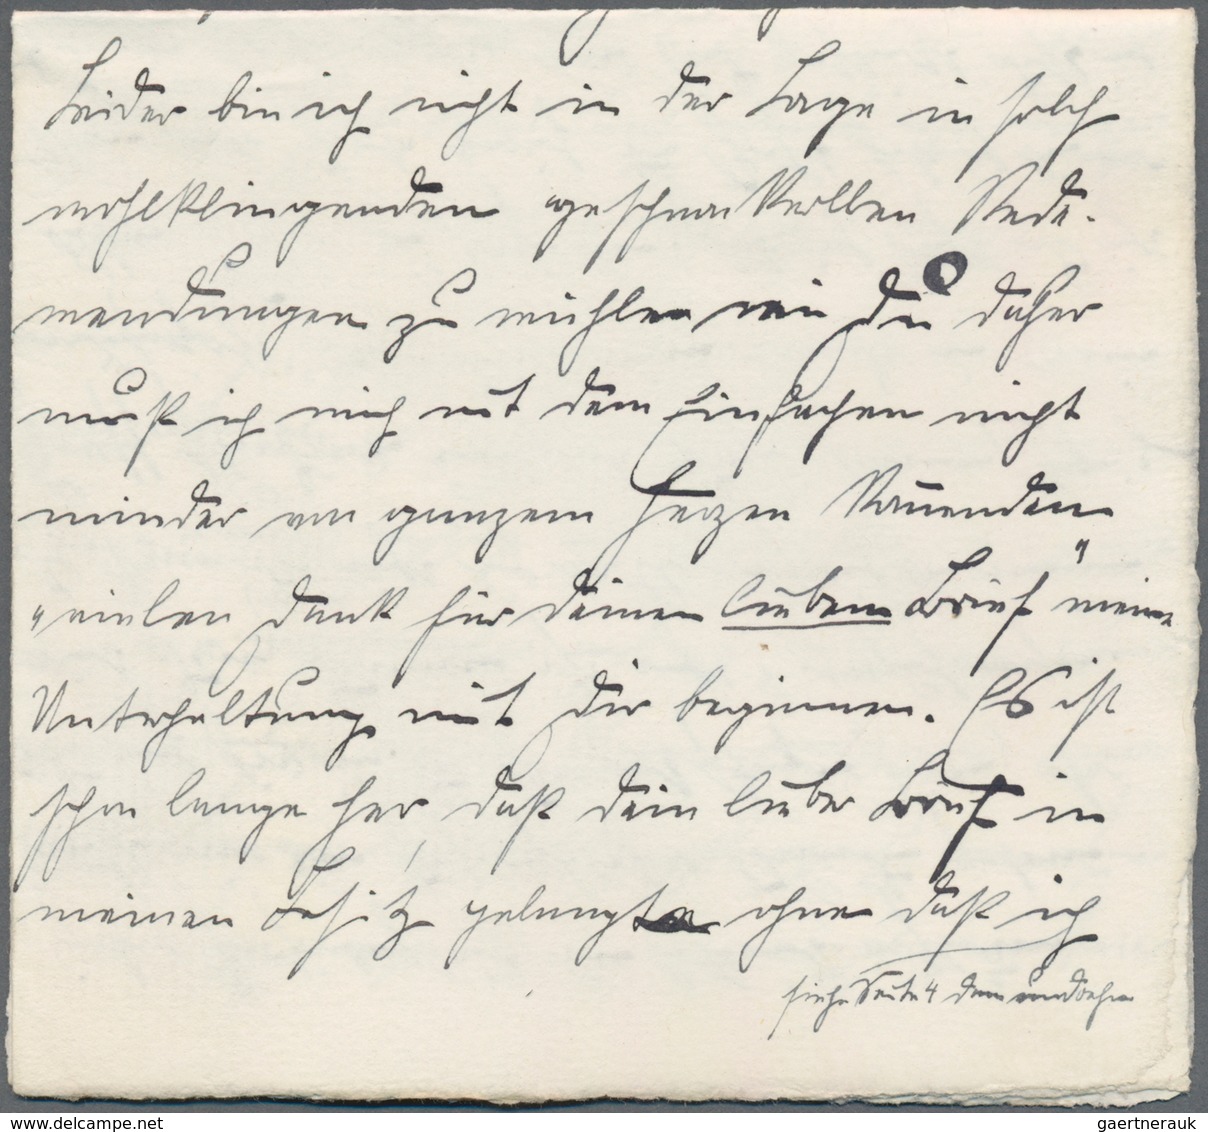 Leider bin ich nicht in der Lage in solch
wohlklingenden geschmackvollen Rede-
wendungen zu wühlen wie Du daher
muß ich mich mit dem Einfachen nicht
minder von ganzem Herzen kommenden
"vielen Dank für Deinen lieben Brief" meine
Unterhaltung mit Dir beginnen. Es ist
schon lange her, daß Dein lieber Brief in
meinen Besitz gelangte ohne daß ich
siehe Seite 4 dann umdrehen
www.delcampe.net
gaertnerauk